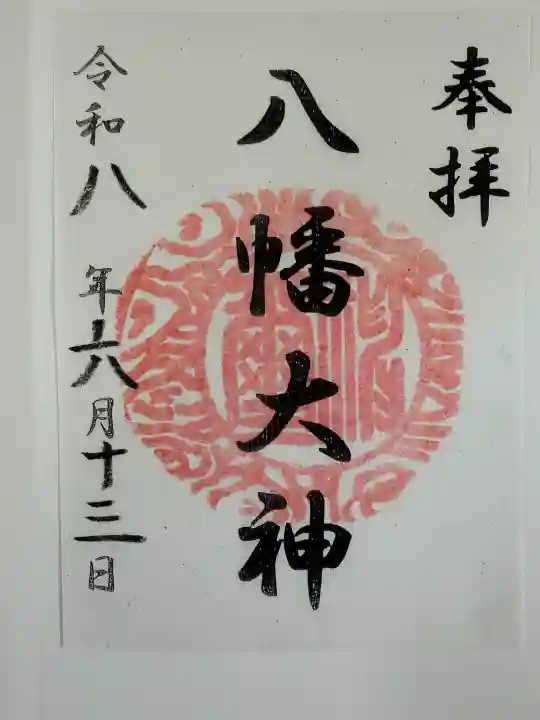 奉拝
八幡大神
令和八年六月十三日